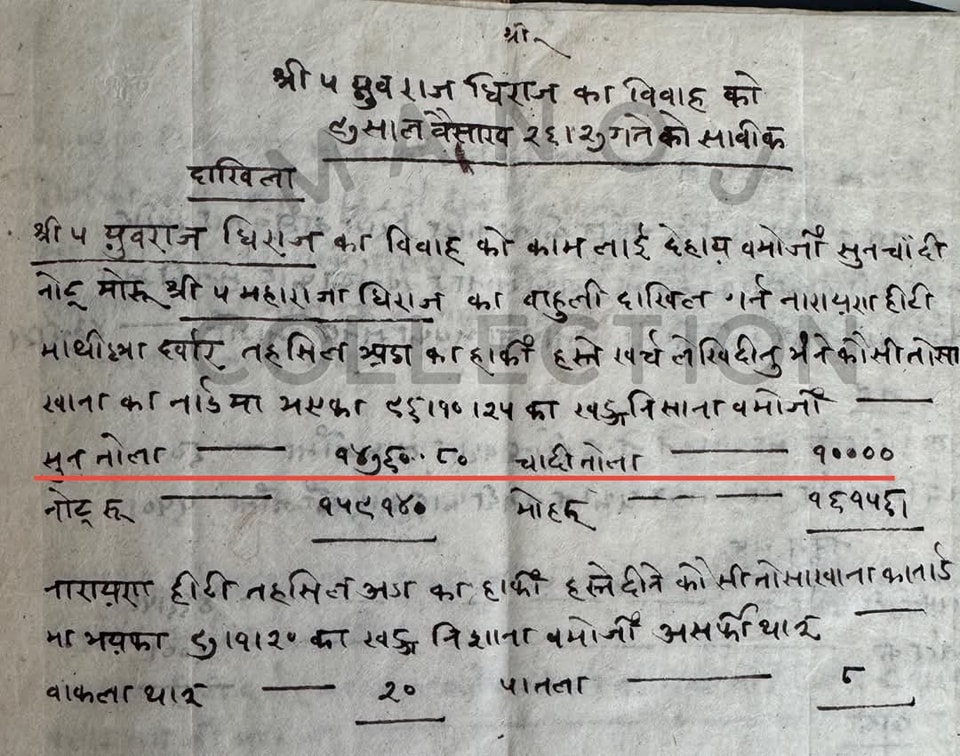 श्री
श्री ५ युवराज धिराज का विवाह को
९७ साल वैसाख २६।२७ गते को सावीक
दाखिला
श्री ५ युवराज धिराज का विवाह को काम लाई देहाय वमोजीं सुनचांदी
नोट् मोरू श्री ५ महाराजा धिराज का वाहुली दाखिल गर्न नारायण हीटी
माथील्ला दर्वार तहसिल अडा का हाकीं हस्ते खर्च लेखिदीनु भंने कोसीतोसा
खाना का नाईमा भएका ९६।१०।२५ का खड्ग निसाना वमोजीं
सुन तोला १४७६०.८० चादी तोला १००००
नोट् रू १५९१४० मोहरू १६१५६।
नारायण हीटी तहसिल अडा का हाकीं हस्ते दीने कोसीतोसाखाना का नाई
मा भयका ९७।१।२० का खड्ग निशाना वमोजीं असर्फी थार
वाकला थार २० पातला ८
MANOJ
COLLECTION